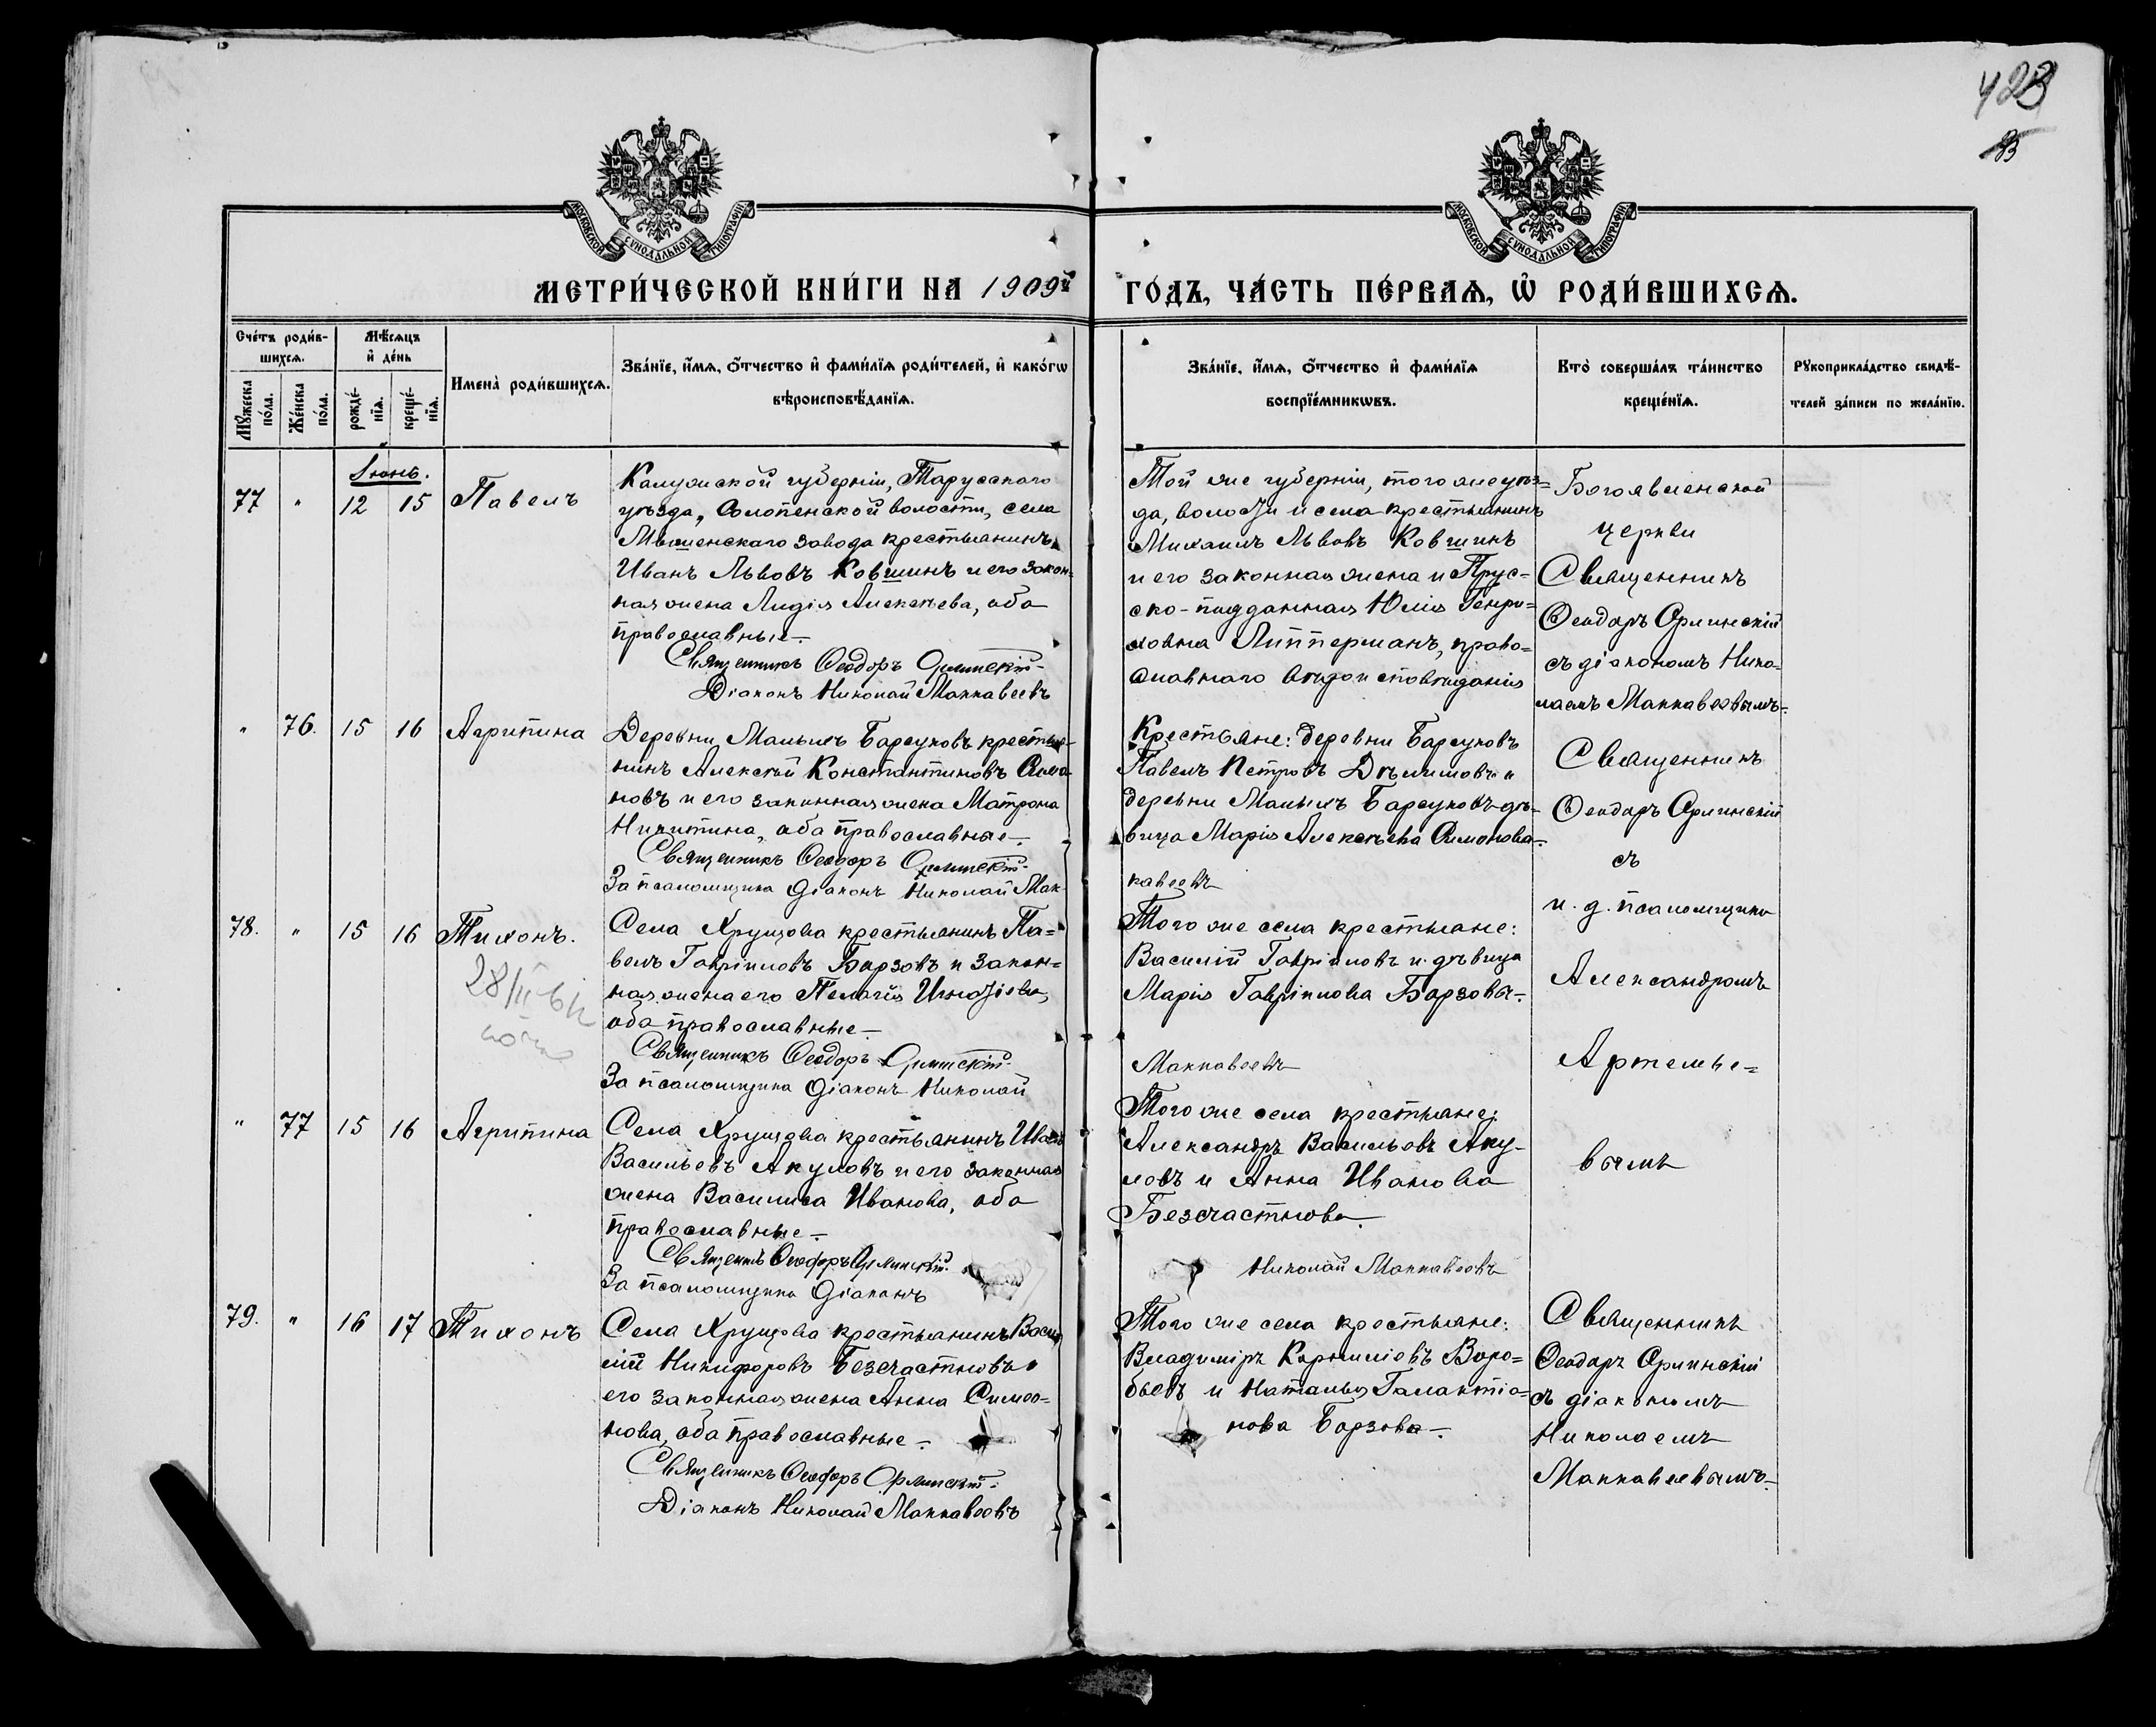 423
МОСКОВСКОЙ СѴНОДАЛЬНОЙ ТИПОГРАФІИ
МОСКОВСКОЙ СѴНОДАЛЬНОЙ ТИПОГРАФІИ
МЕТРИ́ЧЕСКОЙ КНИ́ГИ НА 1909й
ГО́ДЪ, ЧА́СТЬ ПЕ́РВАѦ, Ѡ҆ РОДИ́ВШИХСѦ.
Сче́тъ роди́в-
шихсѧ.
Мꙋ́жеска по́ла.
Же́нска по́ла.
Мѣ́сѧцъ
и҆ де́нь
рожде́-
нїѧ.
креще́-
нїѧ.
Имена̀ роди́вшихсѧ.
Зва́нїе, и҆́мѧ, ѻ҆́тчество и҆ фами́лїѧ роди́телей, и҆ како́гѡ
вѣроисповѣ́данїѧ.
Зва́нїе, и҆́мѧ, ѻ҆́тчество и҆ фами́лїѧ
воспрїе́мникѡвъ.
Кто̀ соверша́лъ та́инство
креще́нїѧ.
Рꙋкоприкла́дство свидѣ́-
телей за́писи по жела́нїю.
Іюнь.
77 " 12 15 Павелъ
Калужской губерніи, Тарусскаго
уѣзда, Солопенской волости, села
Мышенскаго завода крестьянинъ
Иванъ Львовъ Ковшинъ и его закон=
ная жена Лидія Алексѣева, оба
православные.
Священникъ Ѳеодоръ Орлинскій
Діаконъ Николай Маккавеевъ
Той же губерніи, того же уѣз=
да, волости и села крестьянинъ
Михаилъ Львовъ Ковшинъ
и его законная жена и Прус=
ско-подданная Юлія Генри=
ховна Липперманъ, право=
славнаго вѣроисповѣданія
Богоявленской
церкви
Священникъ
Ѳеодоръ Орлинскій
съ діакономъ Нико=
лаемъ Маккавеевымъ.
" 76. 15 16 Агрипина
Деревни Малыхъ Барсуковъ крестья=
нинъ Алексѣй Константиновъ Симо
новъ и его законная жена Матрона
Никитина, оба православные.
Священникъ Ѳеодоръ Орлинскій
За псаломщика діаконъ Николай Мак
Крестьяне: деревни Барсуковъ
Павелъ Петровъ и
деревни Малыхъ Барсуковъ дѣ-
вица Марія Алексѣева Симонова.
кавеевъ
Священникъ
Ѳеодоръ Орлинскій
съ
и. д. псаломщика
Александромъ
Артемье=
вымъ
78. " 15 16 Тихонъ.
28/II-61г
Села Хрущова крестьянинъ Па=
велъ Гавріиловъ Борзовъ и закон=
ная жена его Пелагія Игнатіева,
оба православные
Священникъ Ѳеодоръ Орлинскій
За псаломщика діаконъ Николай
Того же села крестьяне:
Василій Гавріиловъ и дѣвица
Марія Гавріилова Борзовы.
Маккавеевъ
" 77 15 16 Агрипина
Села Хрущова крестьянинъ Иванъ
Васильевъ Акуловъ и его законная
жена Василиса Иванова, оба
православные.
Священникъ Ѳеодоръ Орлинскій.
За псаломщика діаконъ
Того же села крестьяне:
Александръ Васильевъ Аку-
ловъ и Анна Иванова
Безсчастнова.
Николай Маккавеевъ
79. " 16 17 Тихонъ
Села Хрущова крестьянинъ Васи
лій Никифоровъ Безсчастновъ и
его законная жена Анна Симео=
нова, оба православные.
Священникъ Ѳеодоръ Орлинскій
Діаконъ Николай Маккавеевъ
Того же села крестьяне:
Владиміръ Корниліевъ Воро=
бьевъ и Наталья Галактіо=
нова Борзова.
Священникъ
Ѳеодоръ Орлинскій
съ діакономъ
Николаемъ
Маккавеевымъ.